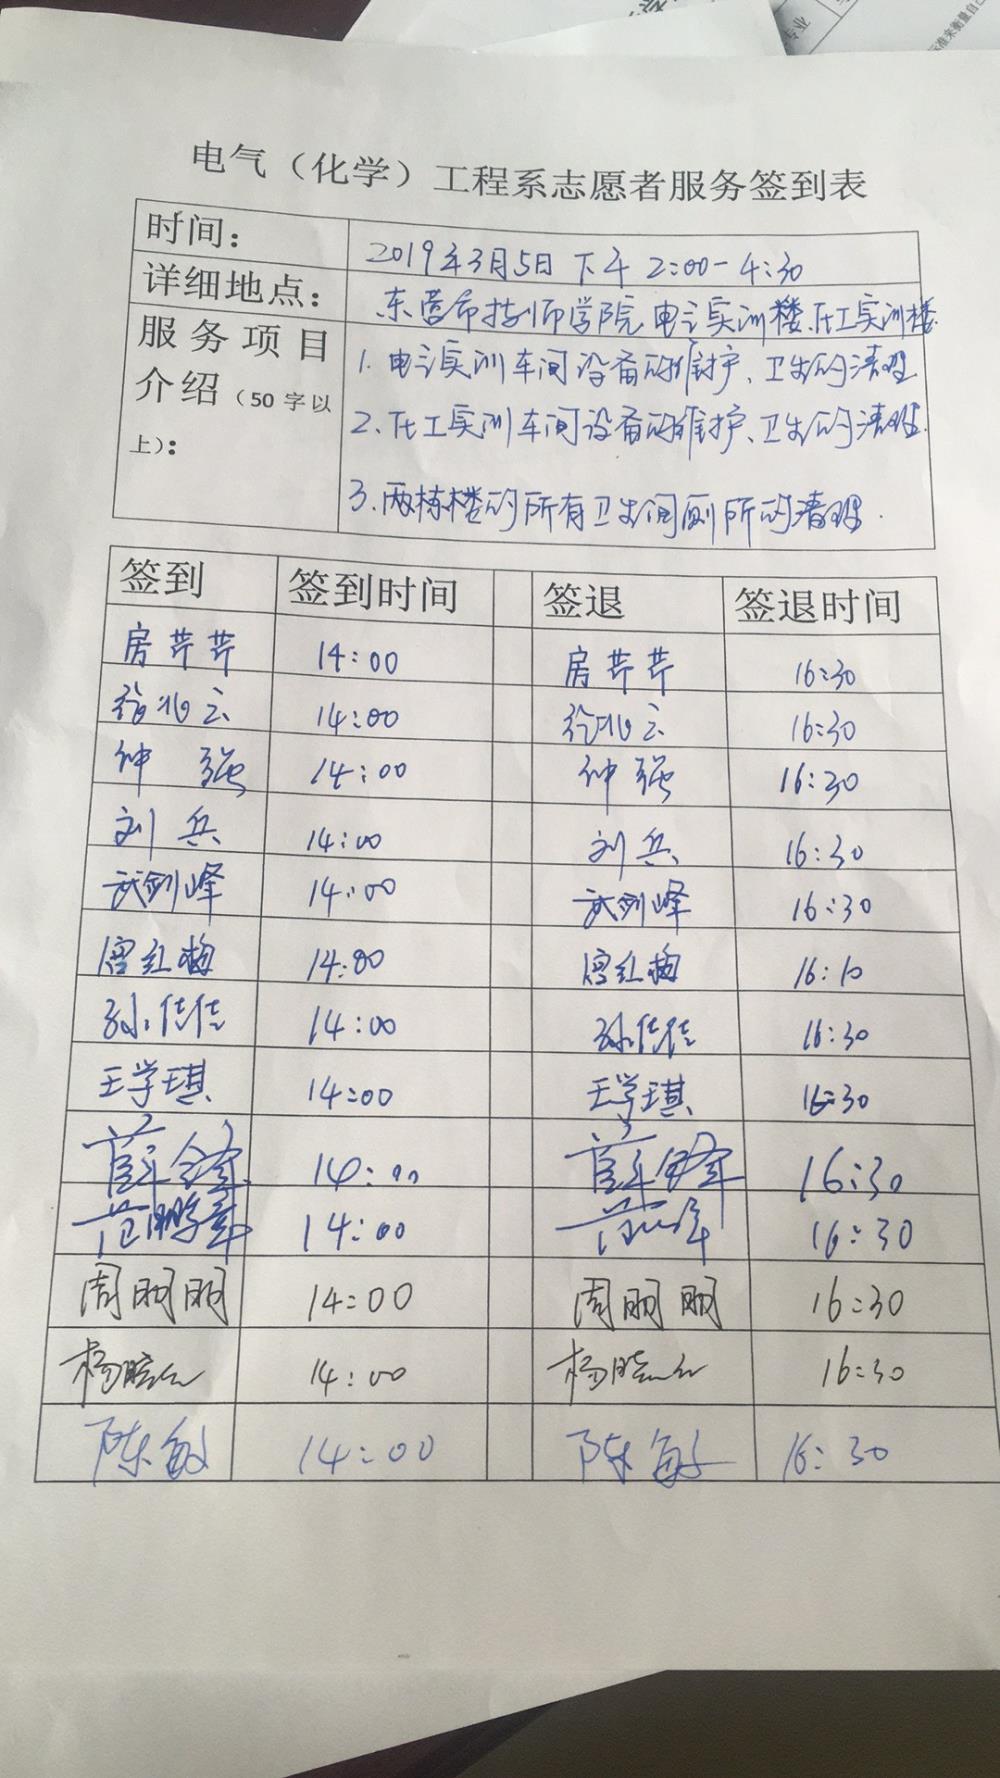 电气（化学）工程系志愿者服务签到表
时间： 2019年3月5日 下午 2:00-4:30
详细地点： 东营市技师学院 电工实训楼、化工实训楼
服务项目介绍（50字以上）：
1. 电工实训车间设备的维护、卫生的清理
2. 化工实训车间设备的维护、卫生的清理.
3. 两栋楼的所有卫生间厕所的清理.
签到 签到时间 签退 签退时间
房芹芹 14:00 房芹芹 16:30
14:00 16:30
仲强 14:00 仲强 16:30
刘兵 14:00 刘兵 16:30
武剑峰 14:00 武剑峰 16:30
唐红梅 14:00 唐红梅 16:10
孙佳佳 14:00 孙佳佳 16:30
王学琪 14:00 王学琪 16:30
14:00 16:30
14:00 16:30
周丽丽 14:00 周丽丽 16:30
14:00 16:30
陈敏 14:00 陈敏 16:30